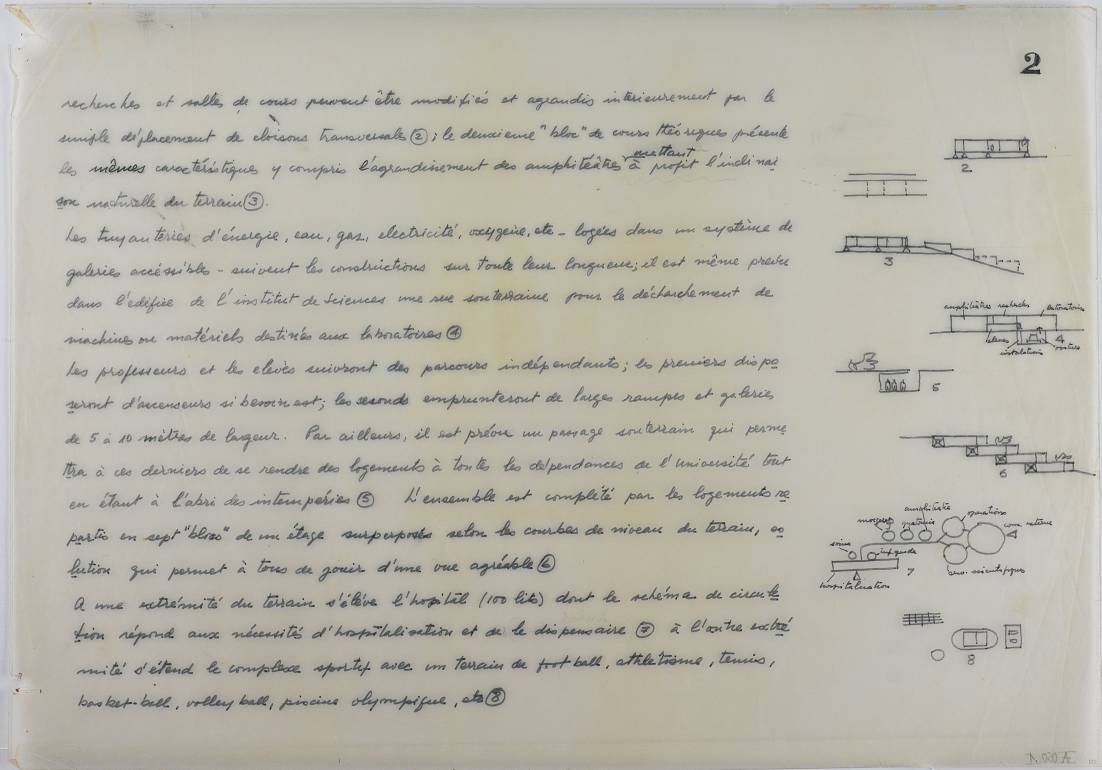 2
recherches et salles de cours peuvent être modifiés et agrandis interieurement par le
simple déplacement de cloisons transversales (2) ; le deuxieme "bloc" de cours théoriques présente
les mêmes caractéristiques y compris l'agrandissement des amphitéâtres mettant à profit l'inclinai
son naturelle du terrain (3).
Les tuyauteries d'énergie, eau, gaz, electricité, oxygene, etc - logées dans un système de
galeries accéssibles - suivent les constructions sur toute leur longueur; il est même prevu
dans l'edifice de l'institut de Sciences une rue souterraine pour le décharchement de
machines ou matériels destinés aux laboratoires (4)
Les professeurs et les elevès suivront des parcours indépendants; les premiers dispo
seront d'ascenseurs si besoin est; les seconds emprunteront de larges rampes et galeries
de 5 à 10 mètres de largeur. Par ailleurs, il est prévu un passage souterrain qui perme
ttra à ces derniers de se rendre des logements à toutes les dépendances de l'université tout
en étant à l'abri des intempéries (5) L'ensemble est complété par les logements re
partis en sept "blocs" de un étage surperposés selon les courbes de niveau du terrain, so
lution qui permet à tous de jouir d'une vue agréable (6)
A une extrémité du terrain s'élève l'hospital (100 lits) dont le schéma de circula
tion répond aux nécessités d'hospitalisation et de le dispensaire (7) à l'autre extré
mité s'étend le complexe sportif avec un terrain de foot ball, athletisme, tennis,
basket-ball, volley ball, piscine olympique, etc (8)
2
3
amphitéâtres recherches laboratoires
4
installations
5
6
amphitéâtre
operations
7
hospitalisation
8